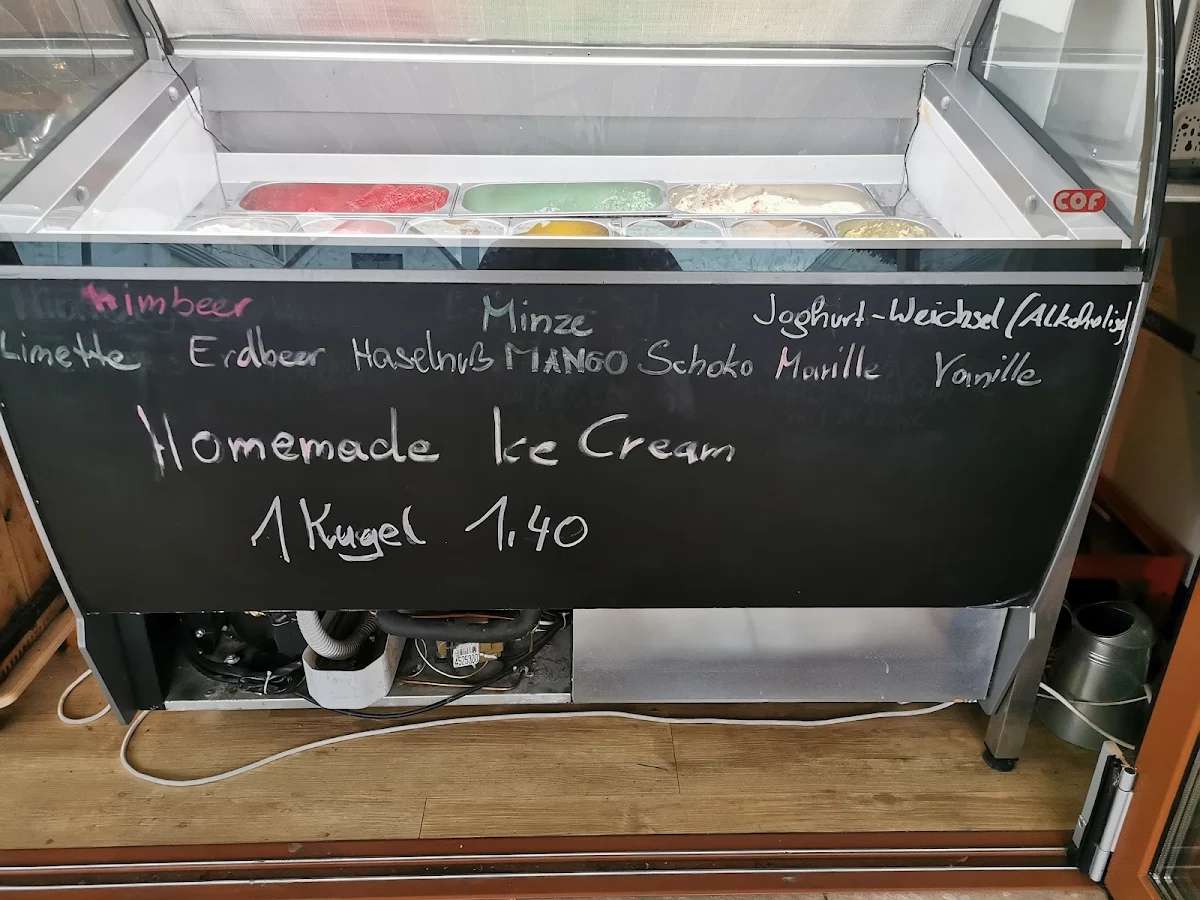 COF
Himbeer Minze Joghurt-Weichsel (Alkoholisch)
Limette Erdbeer Haselnuß MANGO Schoko Marille Vanille
Homemade Ice Cream
1 Kugel 1,40
4525300